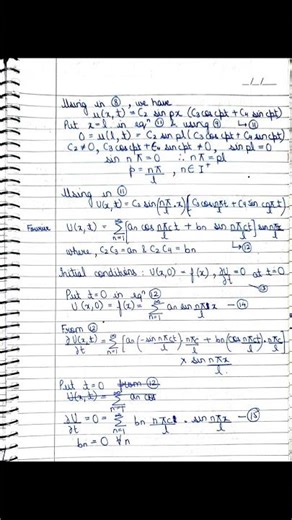 __/__/__
Using in ⑧, we have
u(x,t) = C₂ sin px (C₃ cos cpt + C₄ sin cpt)
Put x=l in eqⁿ ⑪ & using ⑨ → ⑪
0 = u(l,t) = C₂ sin pl (C₃ cos cpt + C₄ sin cpt)
C₂ ≠ 0, C₃ cos cpt + C₄ sin cpt ≠ 0, sin pl = 0
sin nπ = 0 ∴ nπ = pl
p = nπ/l , n ∈ I⁺
Using in ⑪
U(x,t) = C₂ sin(nπ/l x) (C₃ cos nπ/l ct + C₄ sin cnπ/l t)
Fourier U(x,t) = ∞Σn=1 [an cos nπct/l + bn sin nπct/l] sin nπx/l
where, C₂C₃ = an & C₂C₄ = bn → ⑫
Initial conditions : U(x,0) = f(x), ∂U/∂t = 0 at t=0
⑬
Put t=0 in eqⁿ ⑫
U(x,0) = f(x) = ∞Σn=1 an sin nπx/l — ⑭
From ⑫
∂U(x,t)/∂t = ∞Σn=1 [an (-sin nπct/l) nπc/l + bn (cos nπct/l) nπc/l]
× sin nπx/l
Put t=0 from ⑫
U(x,t) = ∞Σn=1 an cos
∂U/∂t = 0 = ∞Σn=1 bn nπc/l · sin nπx/l — ⑮
bn = 0 ∀ n